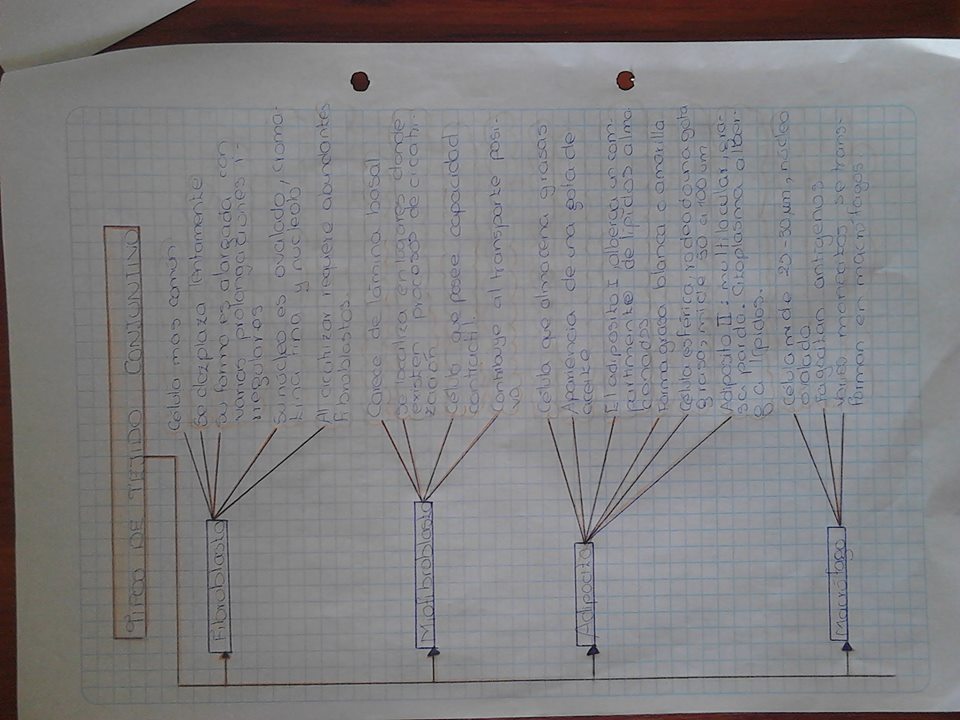 TIPOS DE TEJIDO CONJUNTIVO
Fibroblasto
Célula mas comun
Se dezplaza lentamente
Su forma es alargada con
varias prolongaciones i-
rregulares
Su núcleo es ovalado, croma-
tina fina y nucleolo
Al cicatrizar requiere abundantes
Fibroblastos
Miofibroblasto
Carece de lamina basal
Se localiza en lugares donde
existen procesos de cicatri-
zación
Célula que posee capacidad
contractil
Contribuye al transporte pasi-
vo
Adipocito
Célula que almacena grasas
Apariencia de una gota de
aceite
El adiposito I alberga un com-
partimiento de lipidos alma-
cenados
Forma grasa blanca o amarilla
Célula esferica, rodeada de una gota
grasa, mide 50 a 100 um
Adiposito II: multilocular, gra-
sa parda. Citoplasma alber-
ga lipidos.
Macrófago
Celula mide 25-30 µm, núcleo
ovalado
Facilitan antigenos
Varios monocitos se trans-
forman en macrófagos.